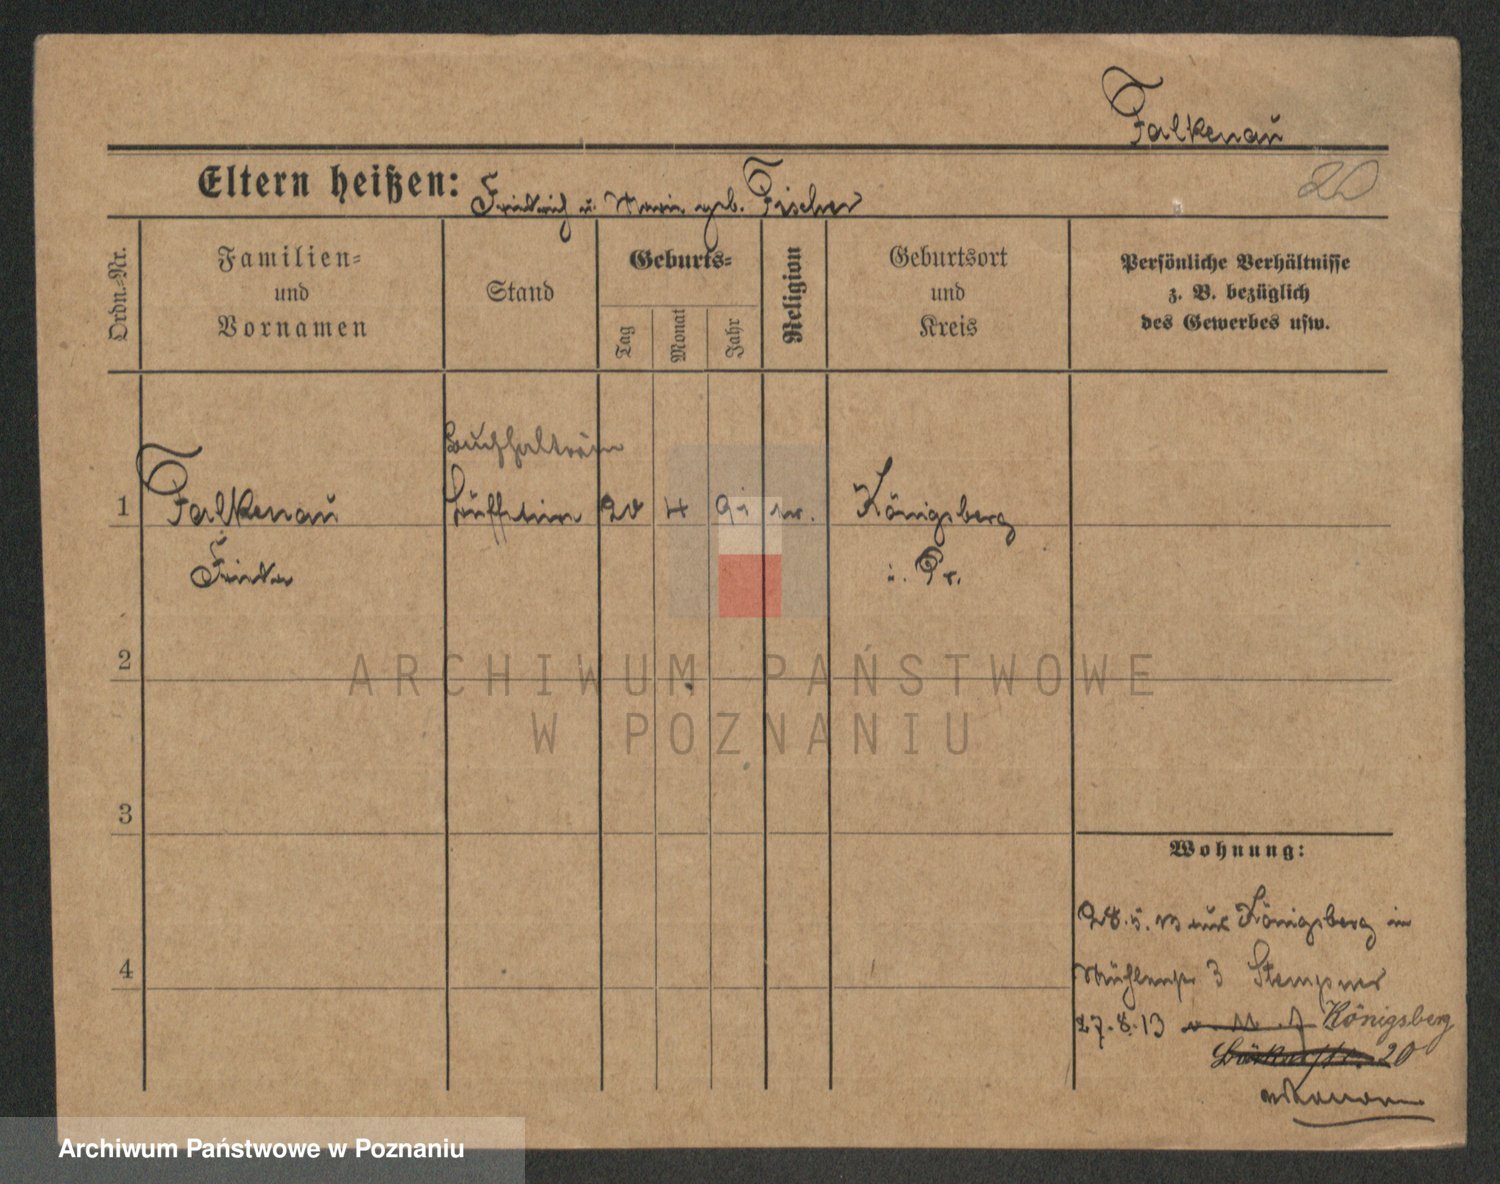 Falkenau
Eltern heißen: Friedrich u. Marie geb. Fischer
20
Ordn.-Nr.
Familien-
und
Vornamen
Stand
Geburts-
Tag
Monat
Jahr
Religion
Geburtsort
und
Kreis
Persönliche Verhältnisse
z. B. bezüglich
des Gewerbes usw.
Buchhalterin
1 Falkenau 20 4 91 ev. Königsberg
Frieda i. Pr.
2
ARCHIWUM PAŃSTWOWE
W POZNANIU
3
Wohnung:
28.5.13 aus Königsberg in
4
Mühlenstr 3
27.8.13 Königsberg
20
Archiwum Państwowe w Poznaniu